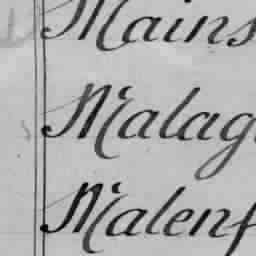 Mains
Malag
Malenf